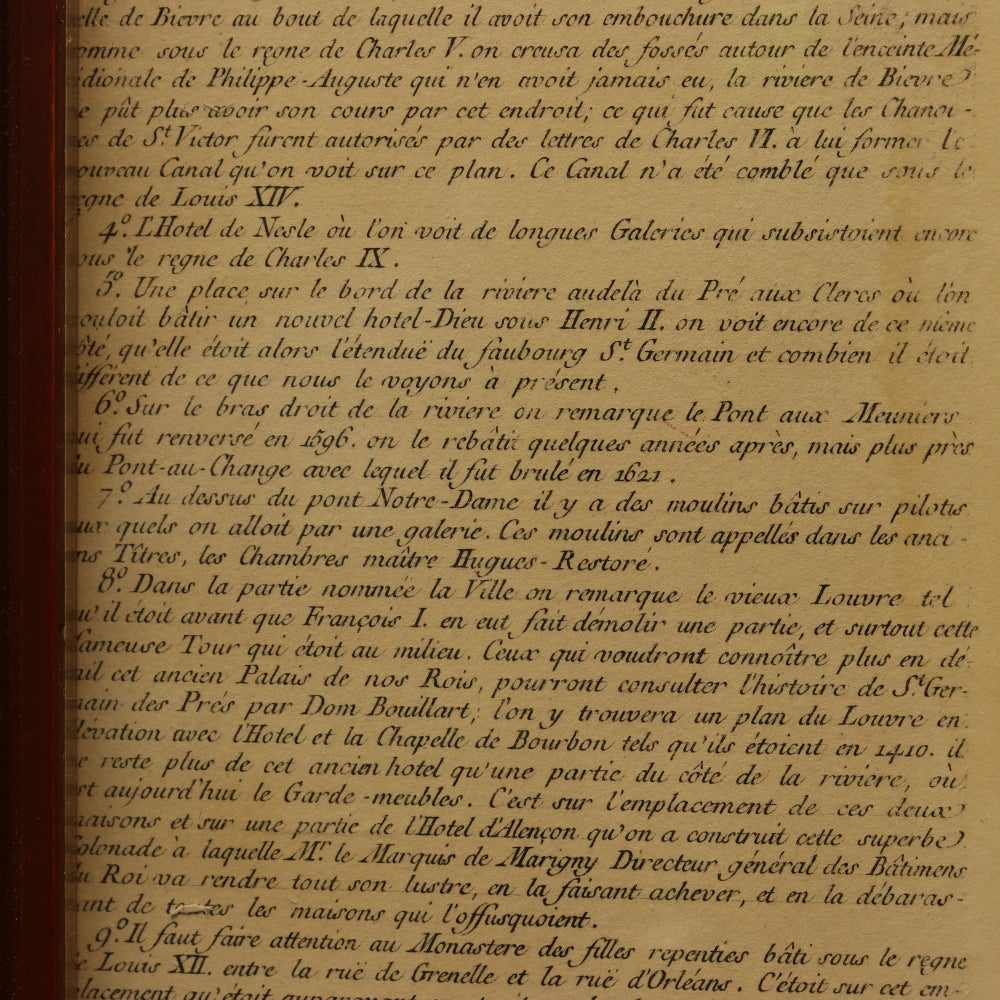 elle de Bievre au bout de laquelle il avoit son embouchure dans la Seine; mais
omme sous le regne de Charles V. on creusa des fossés autour de l'enceinte Mé-
dionale de Philippe-Auguste qui n'en avoit jamais eu, la riviere de Bievre
e pût plus avoir son cours par cet endroit; ce qui fut cause que les Chanoi-
es de S.t Victor furent autorisés par des lettres de Charles VI. à lui former le
ouveau Canal qu'on voit sur ce plan. Ce Canal n'a été comblé que sous le
egne de Louis XIV.
4.º L'Hotel de Nesle où l'on voit de longues Galeries qui subsistoient encore
ous le regne de Charles IX.
5.º Une place sur le bord de la riviere audelà du Pré aux Clercs où l'on
ouloit bâtir un nouvel hotel-Dieu sous Henri II. on voit encore de ce même
ôté, qu'elle étoit alors l'étenduë du faubourg S.t Germain et combien il étoit
ifférent de ce que nous le voyons à présent.
6.º Sur le bras droit de la riviere on remarque le Pont aux Meuniers
ui fut renversé en 1596. on le rebâtit quelques années après, mais plus près
u Pont-au-Change avec lequel il fut brulé en 1621.
7.º Au dessus du pont Notre-Dame il y a des moulins bâtis sur pilotis
ux quels on alloit par une galerie. Ces moulins sont appellés dans les anci-
ns Tîtres, les Chambres maître Hugues-Restoré.
8.º Dans la partie nommée la Ville on remarque le vieux Louvre tel
u'il étoit avant que François I. en eut fait démolir une partie, et surtout cette
fameuse Tour qui étoit au milieu. Ceux qui voudront connoître plus en dé-
ail cet ancien Palais de nos Rois, pourront consulter l'histoire de S.t Ger-
main des Prés par Dom Bouillart; l'on y trouvera un plan du Louvre en
lévation avec l'Hotel et la Chapelle de Bourbon tels qu'ils étoient en 1410. il
e reste plus de cet ancien hotel qu'une partie du côté de la riviere, où
st aujourd'hui le Garde-meubles. C'est sur l'emplacement de ces deux
maisons et sur une partie de l'Hotel d'Alençon qu'on a construit cette superbe
Colonade à laquelle M.r le Marquis de Marigny Directeur général des Bâtimens
du Roi va rendre tout son lustre, en la faisant achever, et en la débaras-
ant de toutes les maisons qui l'offusquoient.
9.º Il faut faire attention au Monastere des filles repenties bâti sous le regne
e Louis XII. entre la ruë de Grenelle et la ruë d'Orléans. C'étoit sur cet em-
placement qu'était